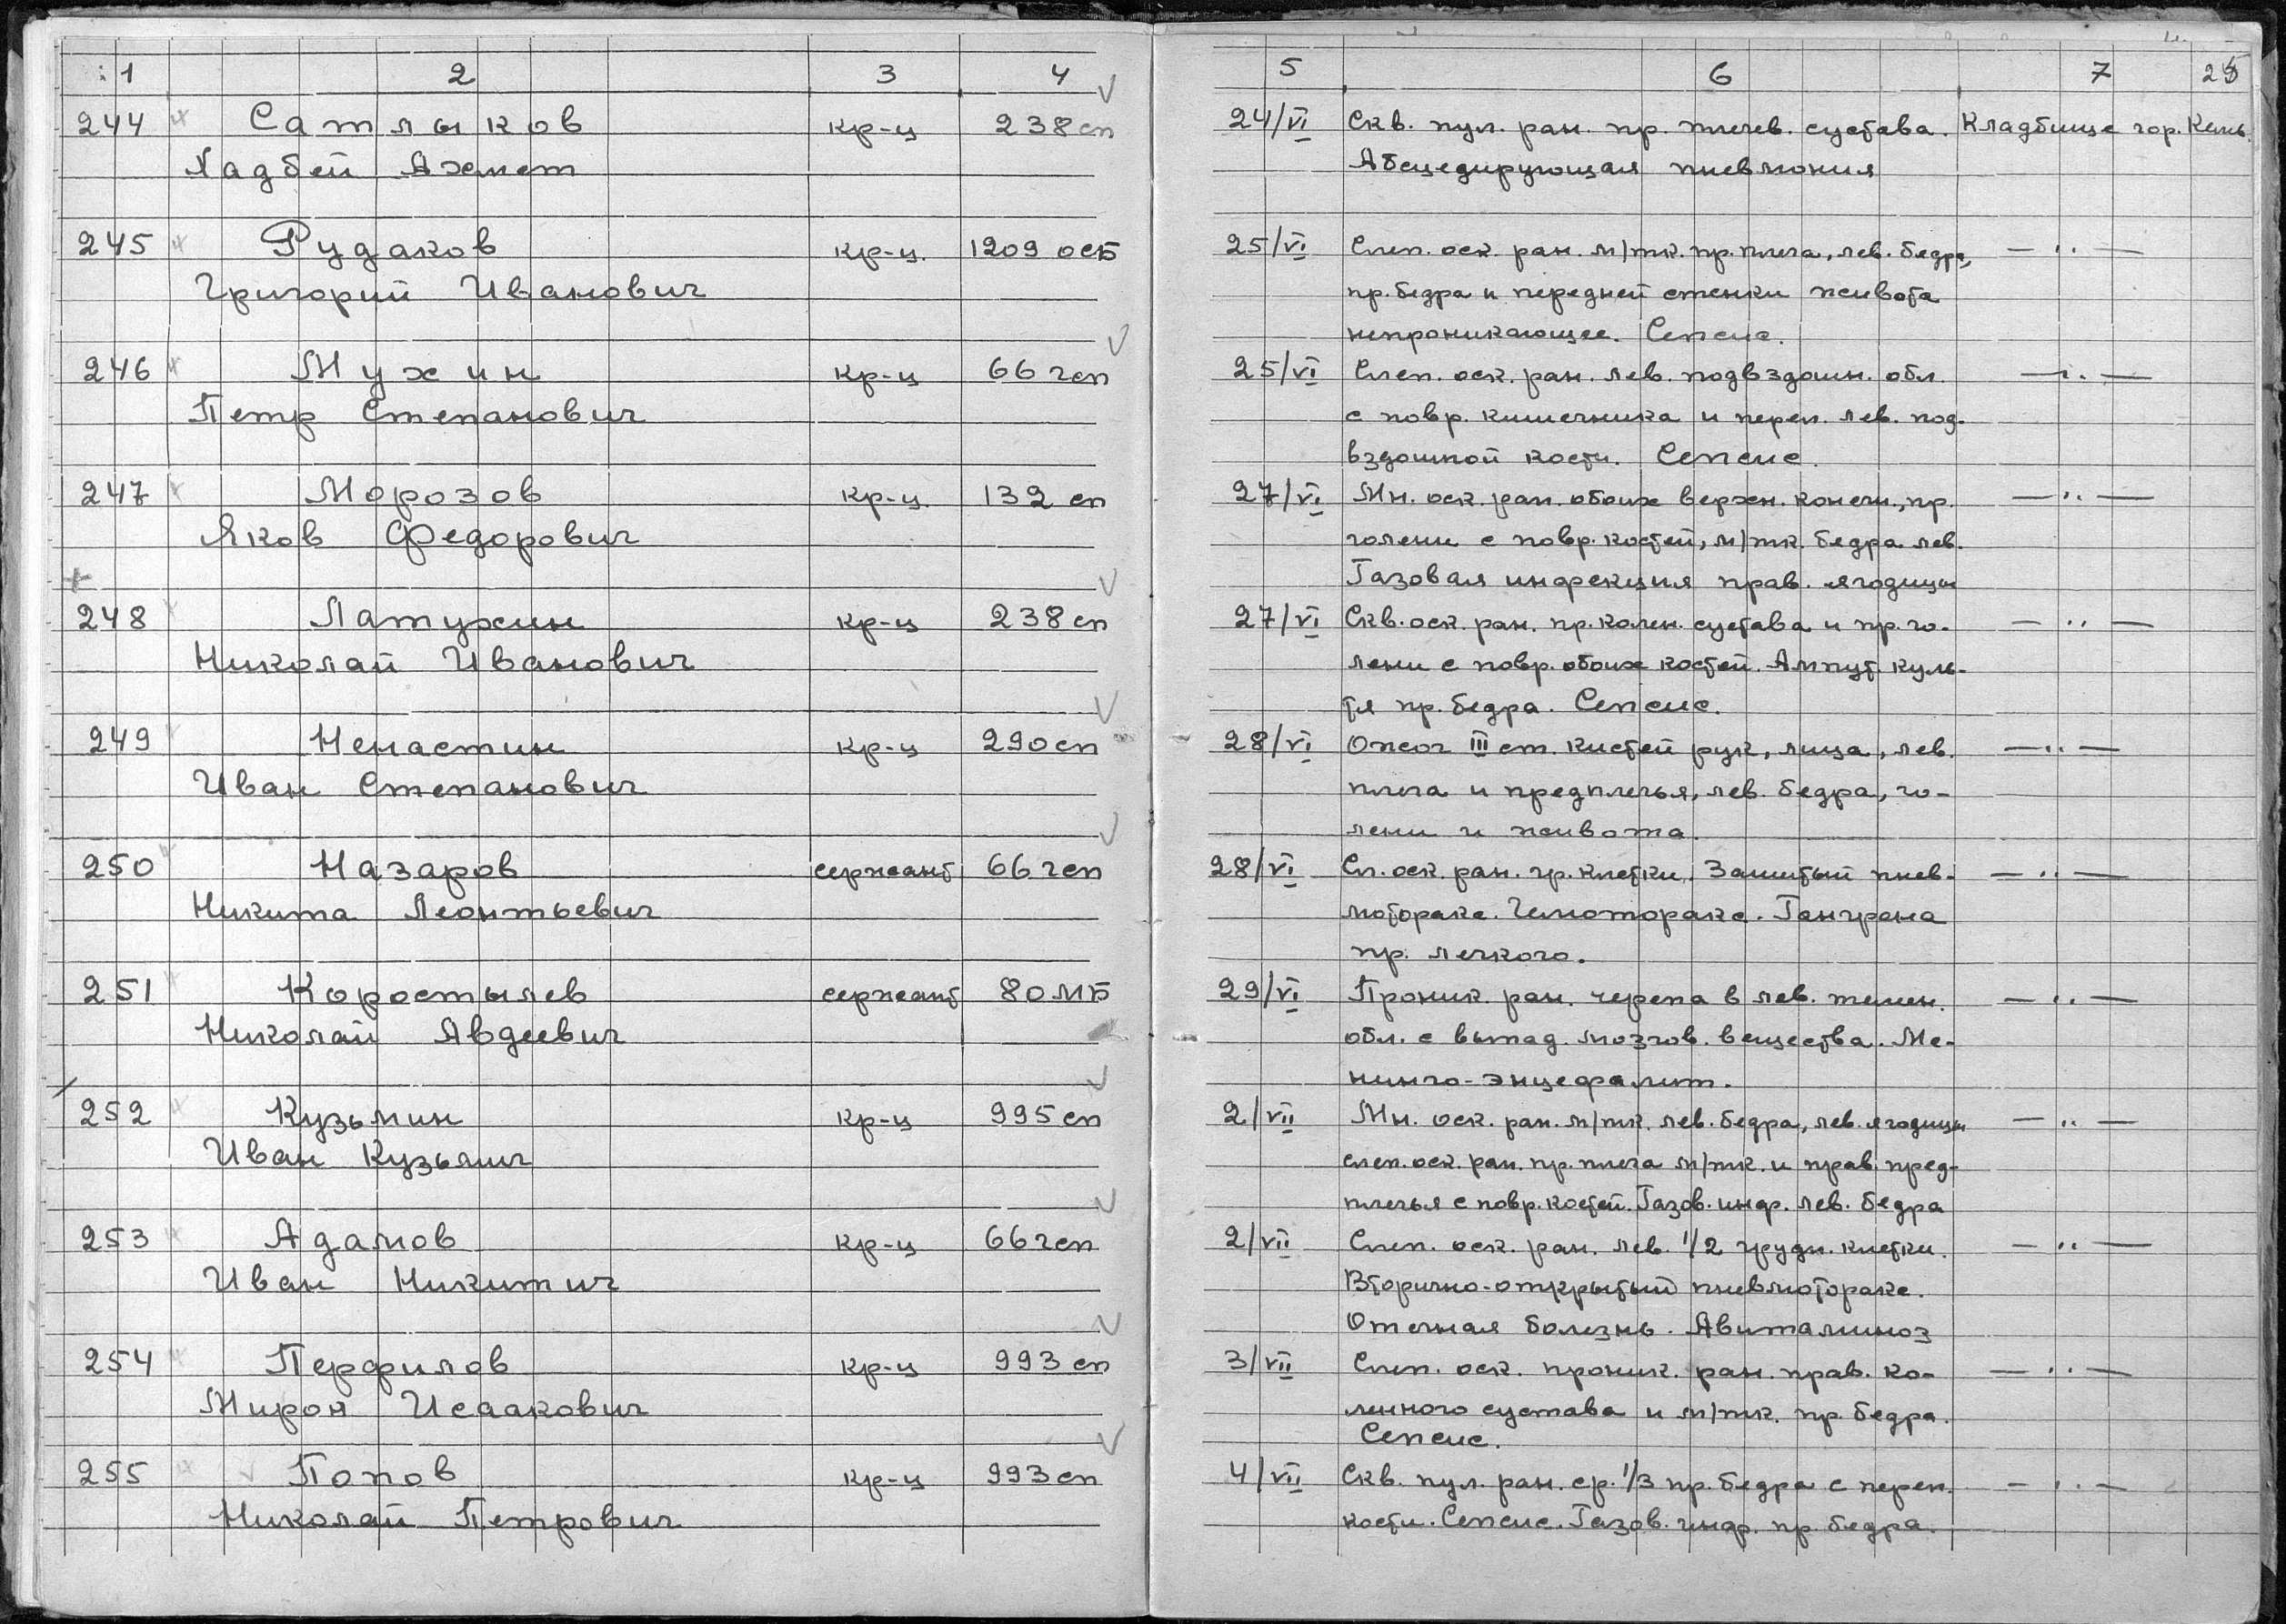 1 2 3 4 5 6 7 25
244 Сатлыков кр-ц 238 сп 24/VI Скв. пул. ран. пр. плечев. сустава. Кладбище гор. Кемь.
Хадбей Ахмет Абсцедирующая пневмония
245 Рудаков кр-ц. 1209 осБ 25/VI Слеп. оск. ран. м/тк. пр. плеча, лев. бедра, — ·· —
Григорий Иванович пр. бедра и передней стенки живота
непроникающее. Сепсис.
246 Мухин кр-ц 66 гсп 25/VI Слеп. оск. ран. лев. подвздошн. обл. — ·· —
Петр Степанович с повр. кишечника и переп. лев. под-
вздошной кости. Сепсис.
247 Морозов кр-ц. 132 сп 27/VI Мн. оск. ран. обоих верхн. конечн., пр. — ·· —
Яков Федорович голени с повр. костей, м/тк. бедра лев.
Газовая инфекция прав. ягодицы
248 Латухин кр-ц 238 сп 27/VI Скв. оск. ран. пр. колен. сустава и пр. го- — ·· —
Николай Иванович лени с повр. обоих костей. Ампут. куль-
тя пр. бедра. Сепсис.
249 Ненастин кр-ц 290 сп 28/VI Ожог III ст. кистей рук, лица, лев. — ·· —
Иван Степанович плеча и предплечья, лев. бедра, го-
лени и живота.
250 Назаров сержант 66 гсп 28/VI Сл. оск. ран. гр. клетки. Зашитый пнев- — ·· —
Никита Леонтьевич моторакс. Гемоторакс. Гангрена
пр. легкого.
251 Коростылев сержант 80 МБ 29/VI Проник. ран. черепа в лев. темен. — ·· —
Николай Авдеевич обл. с выпад. мозгов. вещества. Ме-
нинго-энцефалит.
252 Кузьмин кр-ц 995 сп 2/VII Мн. оск. ран. м/тк. лев. бедра, лев. ягодицы — ·· —
Иван Кузьмич слеп. оск. ран. пр. плеча м/тк. и прав. пред-
плечья с повр. костей. Газов. инф. лев. бедра
253 Адамов кр-ц 66 гсп 2/VII Слеп. оск. ран. лев. 1/2 грудн. клетки. — ·· —
Иван Никитич Вторично-открытый пневмоторакс.
Отечная болезнь. Авитаминоз
254 Перфилов кр-ц 993 сп 3/VII Слеп. оск. проник. ран. прав. ко- — ·· —
Мирон Исаакович ленного сустава и м/тк. пр. бедра.
Сепсис.
255 Попов кр-ц 993 сп 4/VII Скв. пул. ран. ср. 1/3 пр. бедра с переп. — ·· —
Николай Петрович кости. Сепсис. Газов. инф. пр. бедра.